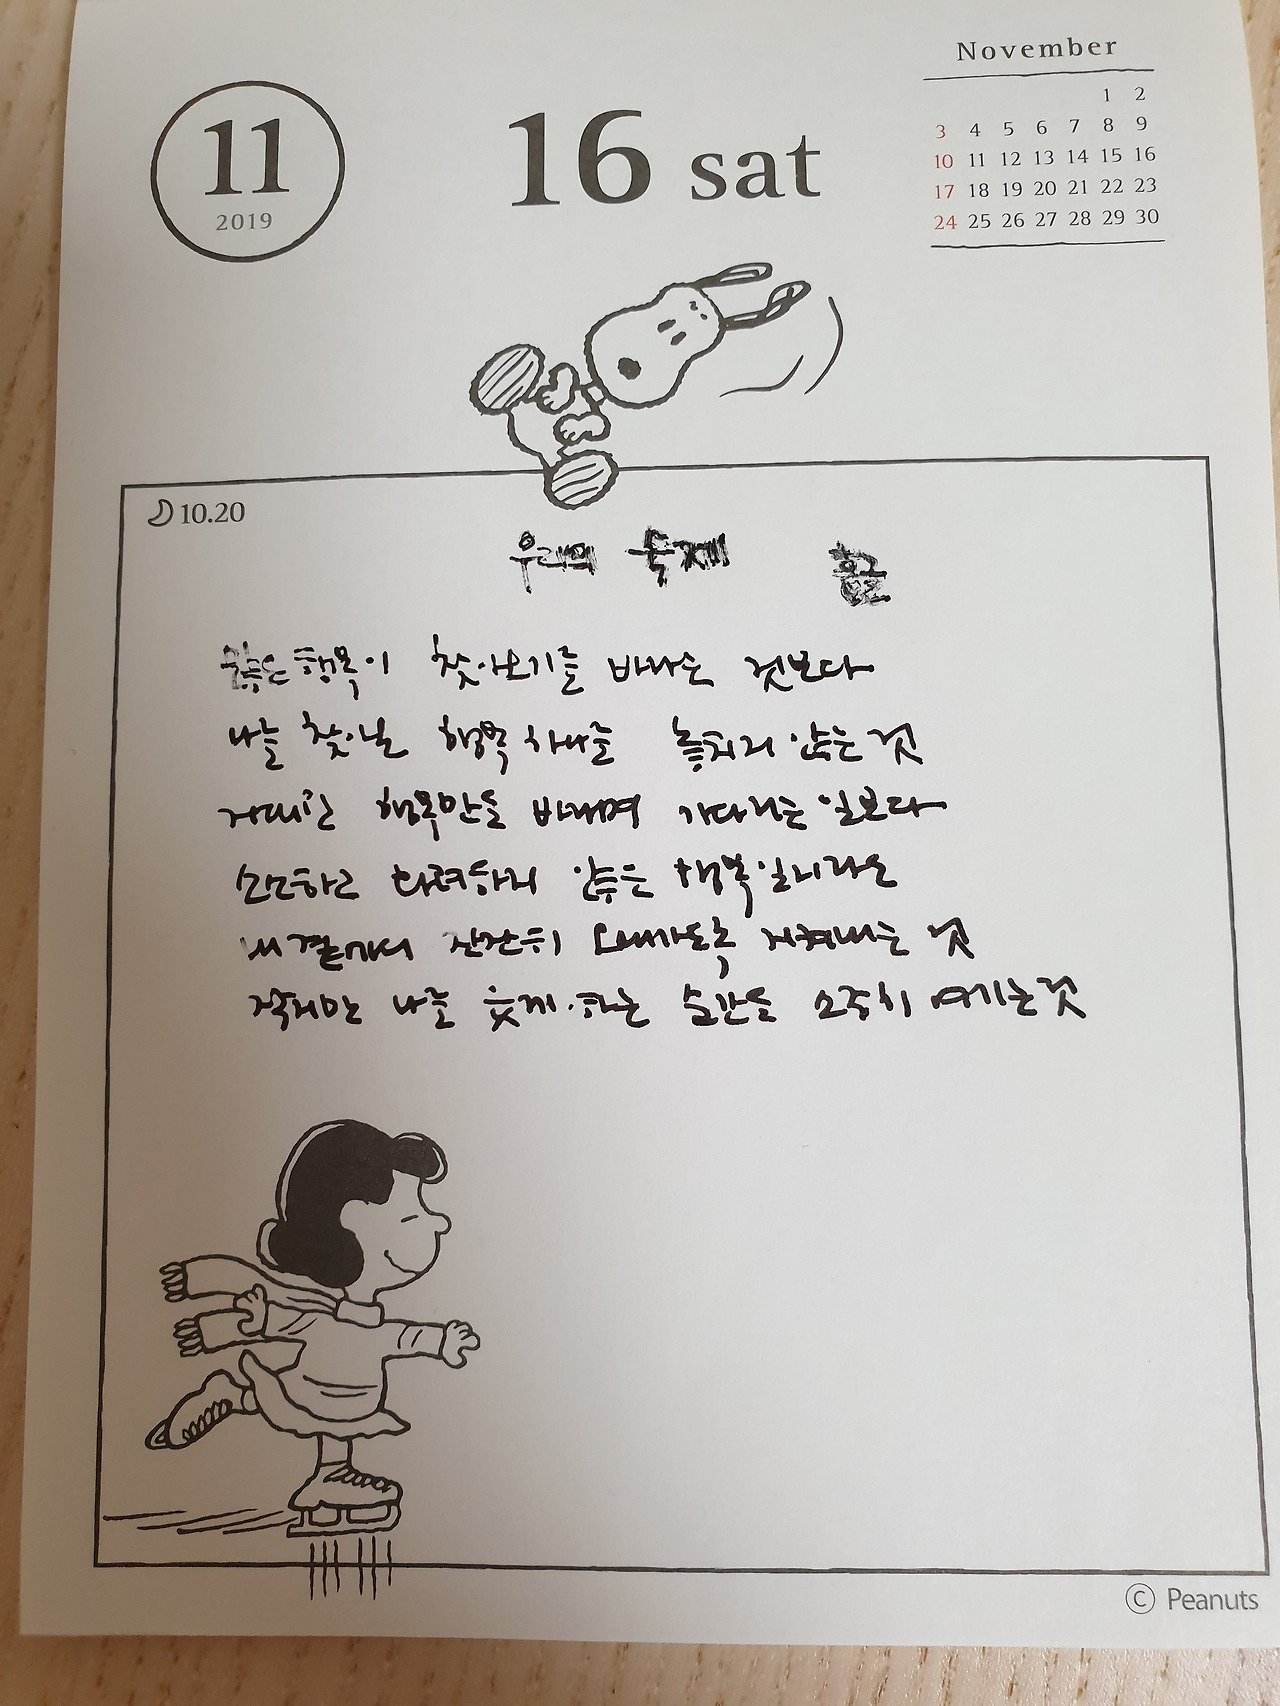 November
11
2019
16 sat
1 2
3 4 5 6 7 8 9
10 11 12 13 14 15 16
17 18 19 20 21 22 23
24 25 26 27 28 29 30
10.20
우리의 숙제
많은 행복이 찾아오기를 바라는 것보다
나를 찾아낸 행복 하나를 놓치지 않는 것
거대한 행복만을 바라며 기다리는 일보다
단단하고 화려하지 않은 행복일지라도
내 곁에서 잔잔히 오래가도록 지켜내는 것
작지만 나를 웃게 하는 순간을 소중히 여기는 것
© Peanuts